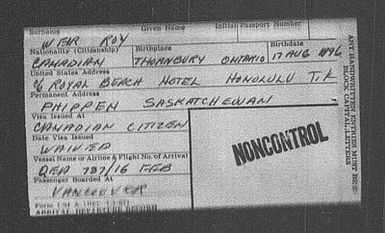 Surname Given Name Initial Passport Number
WEIR ROY
Nationality (Citizenship) Birthplace Birthdate
CANADIAN THORNBURY ONTARIO 17 AUG 1896
United States Address
c/o ROYAL BEACH HOTEL HONOLULU T.H.
Permanent Address
PHIPPEN SASKATCHEWAN
Visa Issued At
CANADIAN CITIZEN
Date Visa Issued
WAIVED
Vessel Name or Airline & Flight No. of Arrival
QEA 797/16 FEB
Passenger Boarded At
VANCOUVER
Form I-94
ARRIVAL DEPARTURE RECORD
NONCONTROL
ANY HANDWRITTEN ENTRIES MUST BE IN
BLACK CAPITAL LETTERS